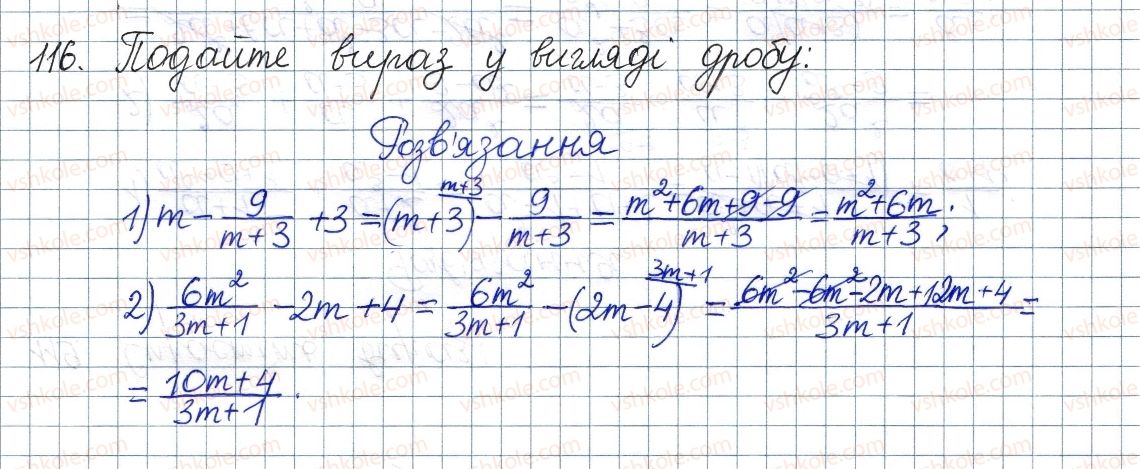 116. Подайте вираз у вигляді дробу:
Розв'язання
1) m - 9/(m+3) + 3 = (m+3)^(m+3) - 9/(m+3) = (m²+6m+9-9)/(m+3) = (m²+6m)/(m+3);
2) 6m²/(3m+1) - 2m + 4 = 6m²/(3m+1) - (2m-4)^(3m+1) = (6m²-6m²-2m+12m+4)/(3m+1) =
= (10m+4)/(3m+1).